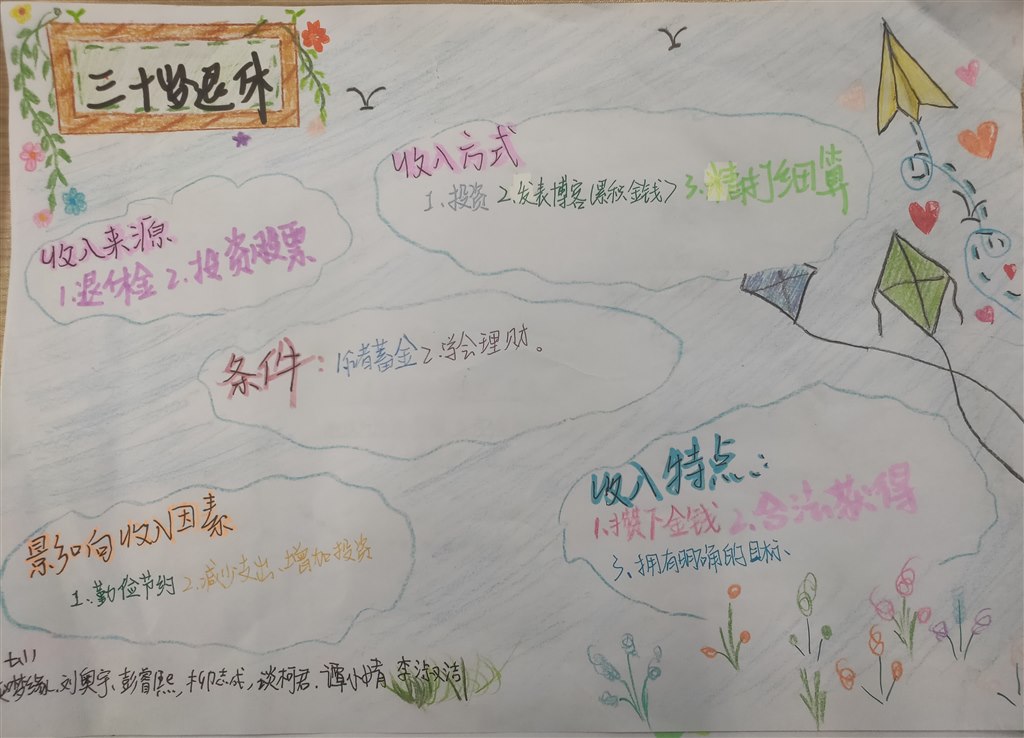 三十岁退休
收入方式
1、投资 2、发表博客(累积金钱) 3、精打细算
收入来源
1.退休金 2.投资股票
条件:1、储蓄金 2、学会理财。
收入特点:
1.攒下金钱 2.合法获得
3、拥有明确的目标、
影响收入因素
1、勤俭节约 2、减少支出、增加投资
梦缘、刘奥宇、彭睿熙、柳志成、谈柯君、谭小婧 李淑洁